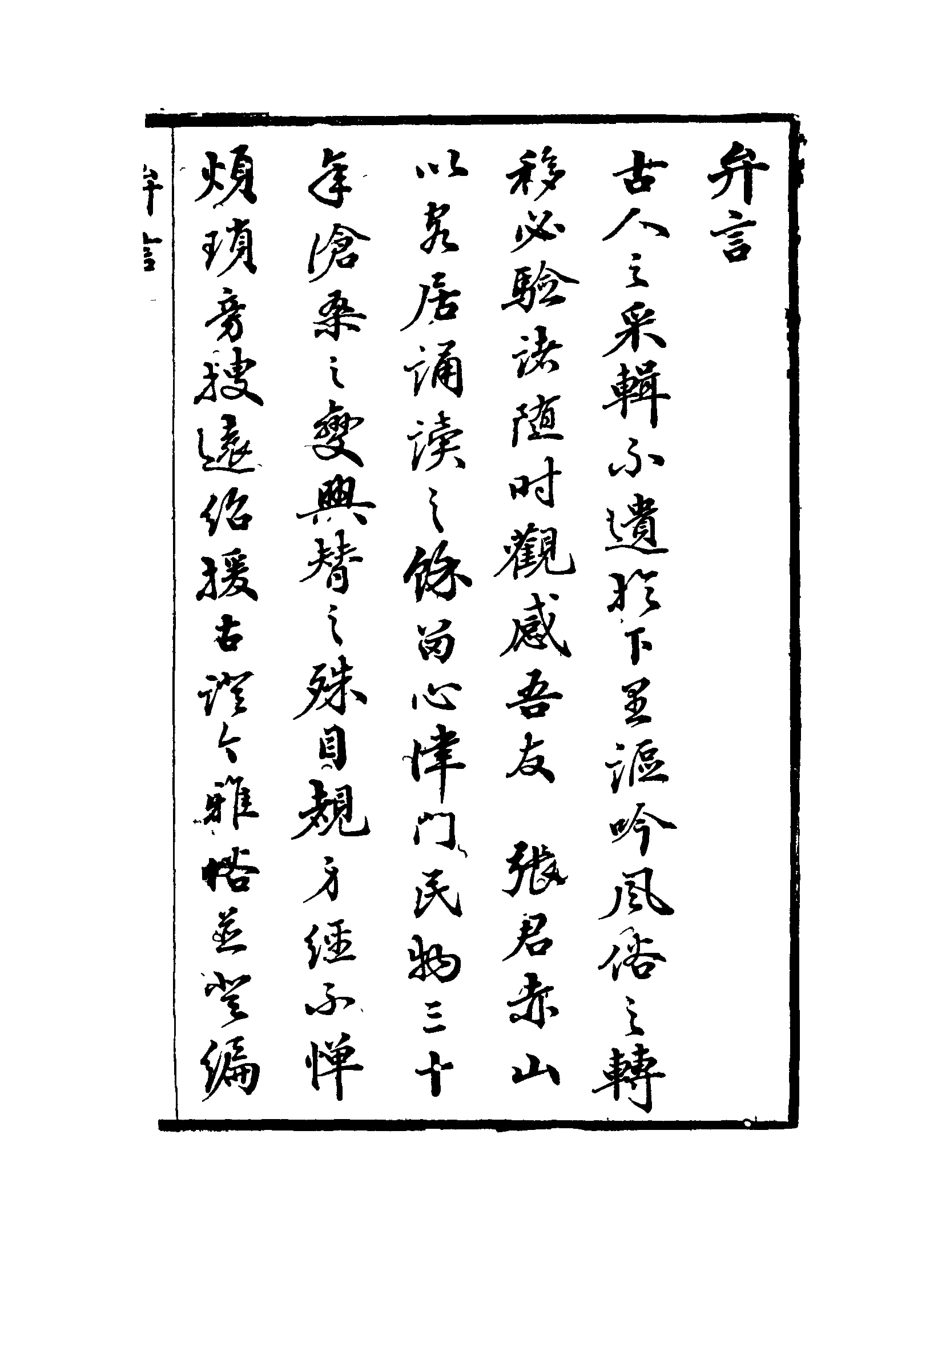 弁言
古人之采輯不遺於下里謳吟風俗之轉
移必驗諸随时觀感吾友 張君赤山
以客居诵读之餘留心津门民物三十
年滄桑之變興替之殊目覩身經不惮
煩瑣旁搜遠紹援古證今雅俗並登編
弁言